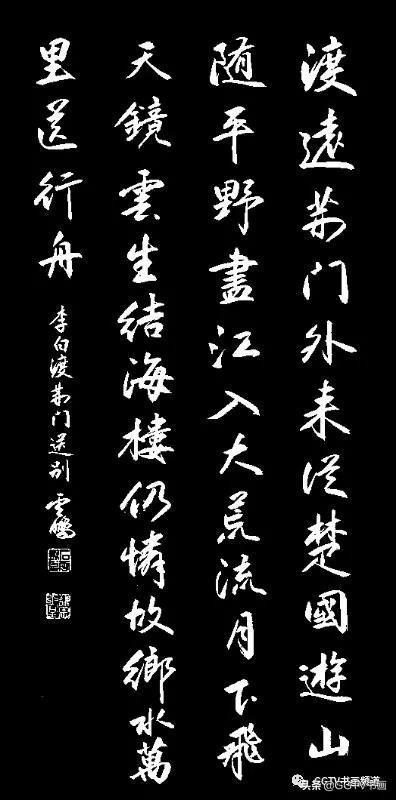 渡遠荆门外来从楚國遊山
随平野盡江入大荒流月下飛
天鏡雲生结海樓仍憐故鄉水萬
里送行舟
李白渡荆门送别 雲鵬
CCTV书画频道
头条@CCTV书画